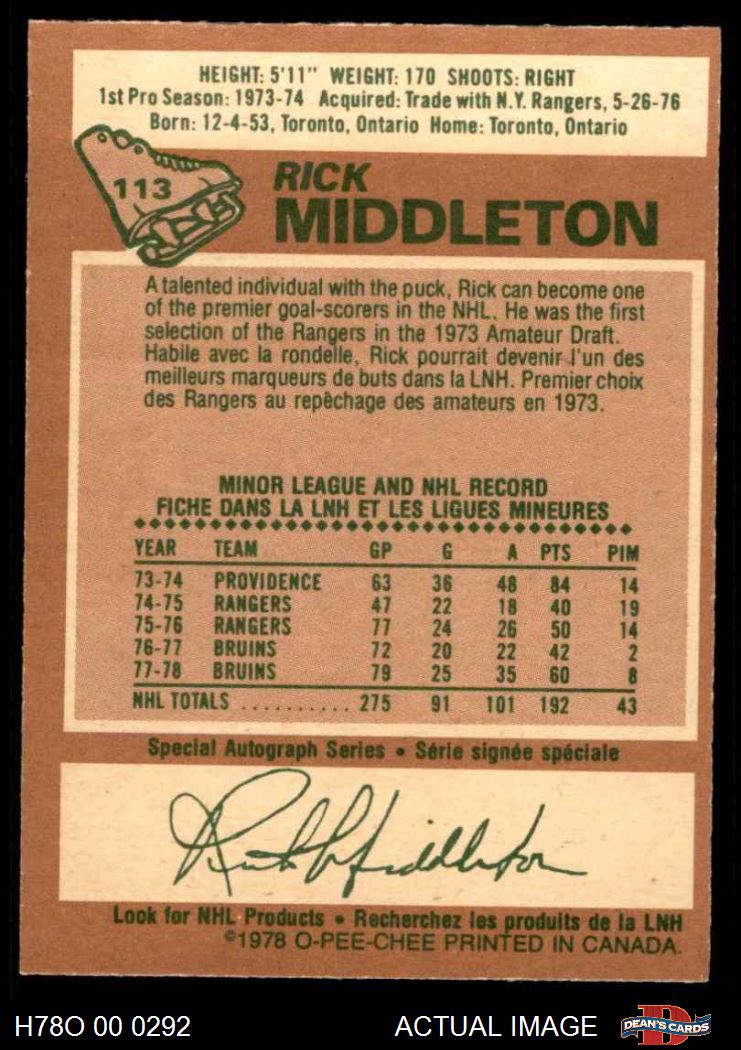 HEIGHT: 5'11" WEIGHT: 170 SHOOTS: RIGHT
1st Pro Season: 1973-74 Acquired: Trade with N.Y. Rangers, 5-26-76
Born: 12-4-53, Toronto, Ontario Home: Toronto, Ontario
113
RICK
MIDDLETON
A talented individual with the puck, Rick can become one
of the premier goal-scorers in the NHL. He was the first
selection of the Rangers in the 1973 Amateur Draft.
Habile avec la rondelle, Rick pourrait devenir l'un des
meilleurs marqueurs de buts dans la LNH. Premier choix
des Rangers au repêchage des amateurs en 1973.
MINOR LEAGUE AND NHL RECORD
FICHE DANS LA LNH ET LES LIGUES MINEURES
YEAR TEAM GP G A PTS PIM
73-74 PROVIDENCE 63 36 48 84 14
74-75 RANGERS 47 22 18 40 19
75-76 RANGERS 77 24 26 50 14
76-77 BRUINS 72 20 22 42 2
77-78 BRUINS 79 25 35 60 8
NHL TOTALS .......... 275 91 101 192 43
Special Autograph Series • Série signée spéciale
Rick Middleton
Look for NHL Products • Recherchez les produits de la LNH
©1978 O-PEE-CHEE PRINTED IN CANADA.
H78O 00 0292 ACTUAL IMAGE D DEAN'S CARDS